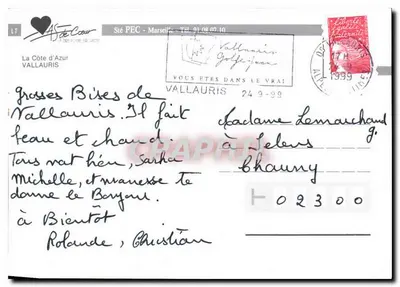 17
As de Cœur
Sté PEC - Marseille - Tél. 91.08.07.10
La Côte d'Azur
VALLAURIS
Vallauris
Golfe-juan
VOUS ETRE DANS LE VRAI
VALLAURIS 24.9-99
1999
Grosses Bises de
Vallauris. Il fait
beau et chaud.
Madame Lemarchand g.
à Selens
Chauny
02300
Michelle, et te
donne le Bonjour.
à Bientôt
Rolande, Christian